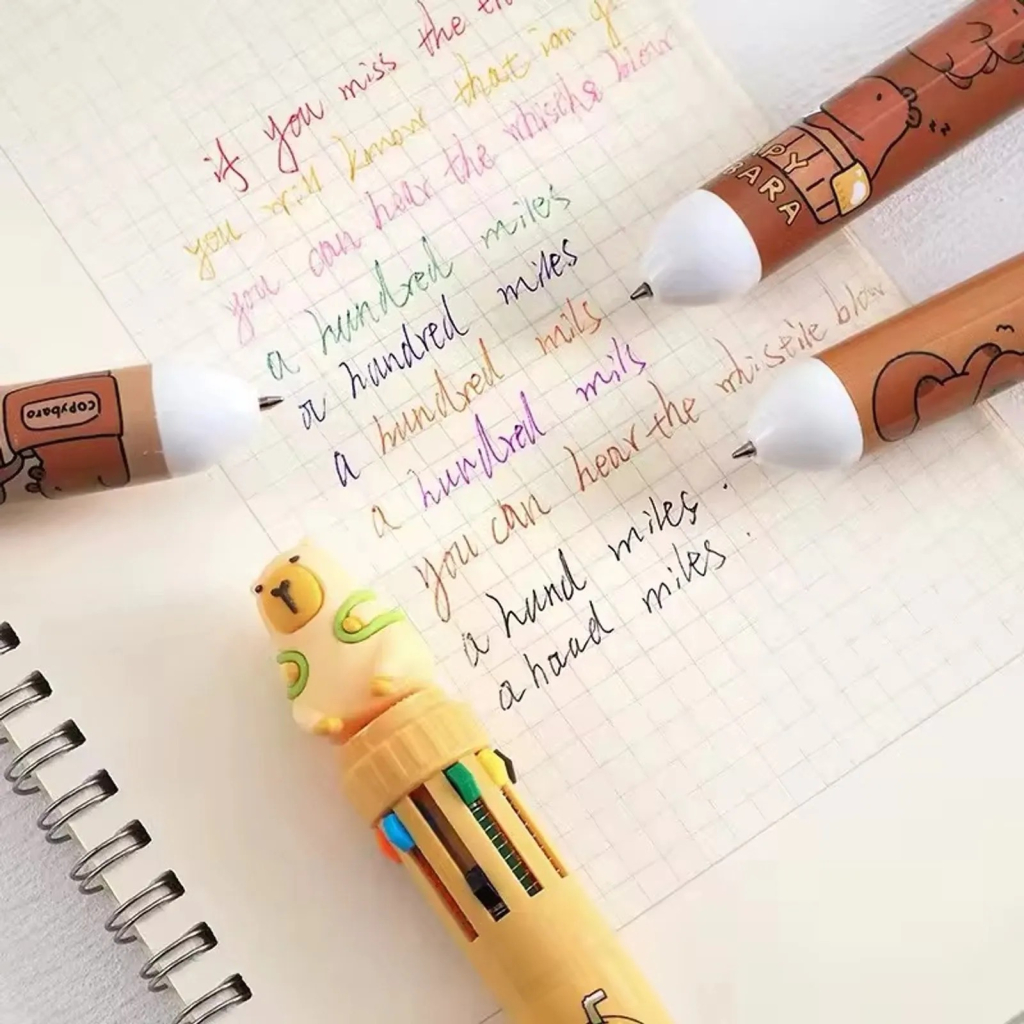 if you miss the
you will know that im
you can hear the whischs blow
a hundred miles
a hundred miles
a hundred mils
a hundred mils
you can hear the whistile blow
a hund miles.
a haad miles.
BARA
copybaro